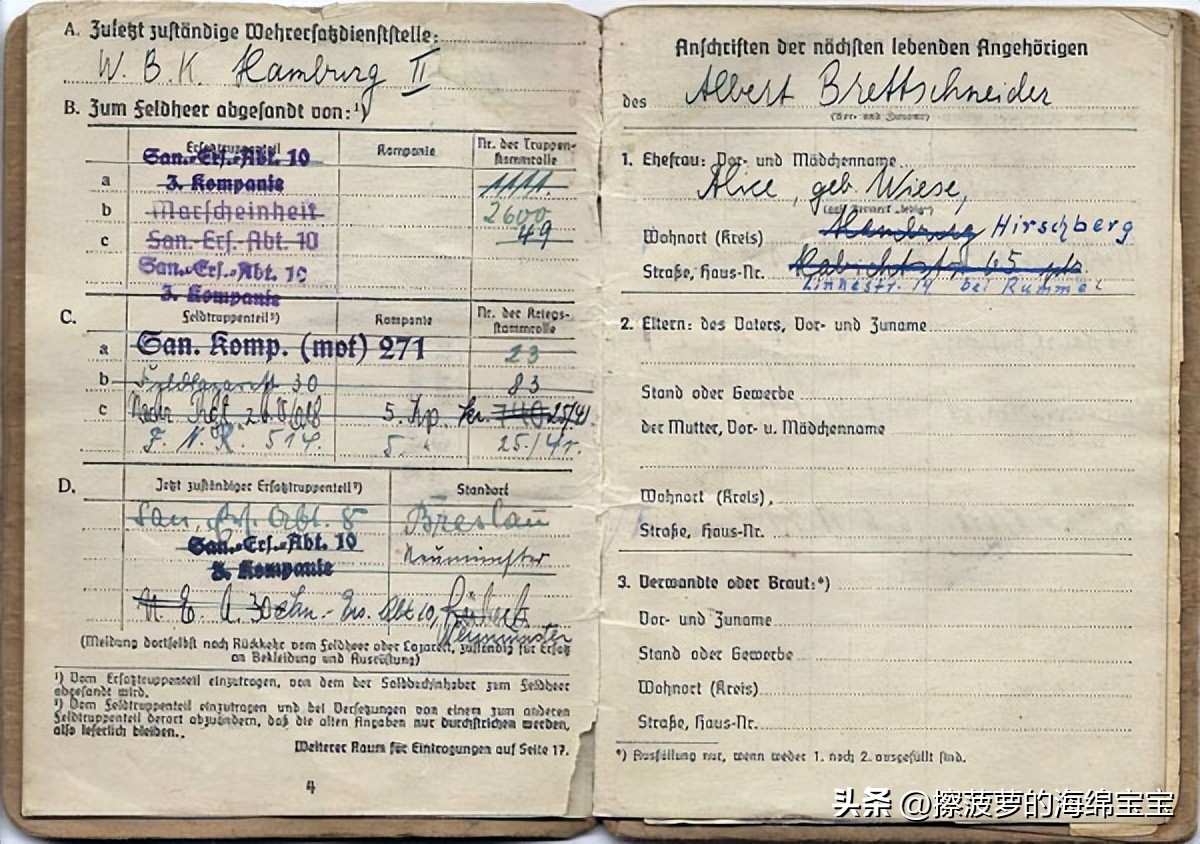 A. Zuletzt zuständige Wehrersatzdienststelle:
W. B. K. Hamburg II
B. Zum Feldheer abgesandt von:¹)
Ersatztruppenteil Kompanie Nr. der Truppen-
stammrolle
San.-Ers.-Abt. 10
a 3. Kompanie 1111.
b Marscheinheit 2600
c San.-Ers.-Abt. 10 49
San.-Ers.-Abt. 10
3. Kompanie
C. Feldtruppenteil²) Kompanie Nr. der Kriegs-
stammrolle
a San. Komp. (mot) 271 23
b Feldlazarett 30 83
c 5. Kp. 25/41
514. 5 " 25/41.
D. Jetzt zuständiger Ersatztruppenteil²) Standort
San. Ers. Abt. 8 Breslau
San.-Ers.-Abt. 10 Neumünster
3. Kompanie
San.-Ers. Abt 10, Lübeck
Neumünster
(Meldung dortselbst nach Rückkehr vom Feldheer oder Lazarett, zuständig für Ersatz
an Bekleidung und Ausrüstung)
¹) Vom Ersatztruppenteil einzutragen, von dem der Soldbuchinhaber zum Feldheer
abgesandt wird.
²) Vom Feldtruppenteil einzutragen und bei Versetzungen von einem zum anderen
Feldtruppenteil derart abzuändern, daß die alten Angaben nur durchstrichen werden,
also leserlich bleiben.
Weiterer Raum für Eintragungen auf Seite 17.
4
Anschriften der nächsten lebenden Angehörigen
des Albert Brettschneider
(Vor- und Zuname)
1. Ehefrau: Vor- und Mädchenname
Alice, geb. Wiese,
Wohnort (Kreis) Hamburg Hirschberg
Straße, Haus-Nr. 65
Linnestr. 14 bei Rummel
2. Eltern: des Vaters, Vor- und Zuname
Stand oder Gewerbe
der Mutter, Vor- u. Mädchenname
Wohnort (Kreis)
Straße, Haus-Nr.
3. Verwandte oder Braut:*)
Vor- und Zuname
Stand oder Gewerbe
Wohnort (Kreis)
Straße, Haus-Nr.
*) Ausfüllung nur, wenn weder 1. noch 2. ausgefüllt sind.
头条 @擦菠萝的海绵宝宝